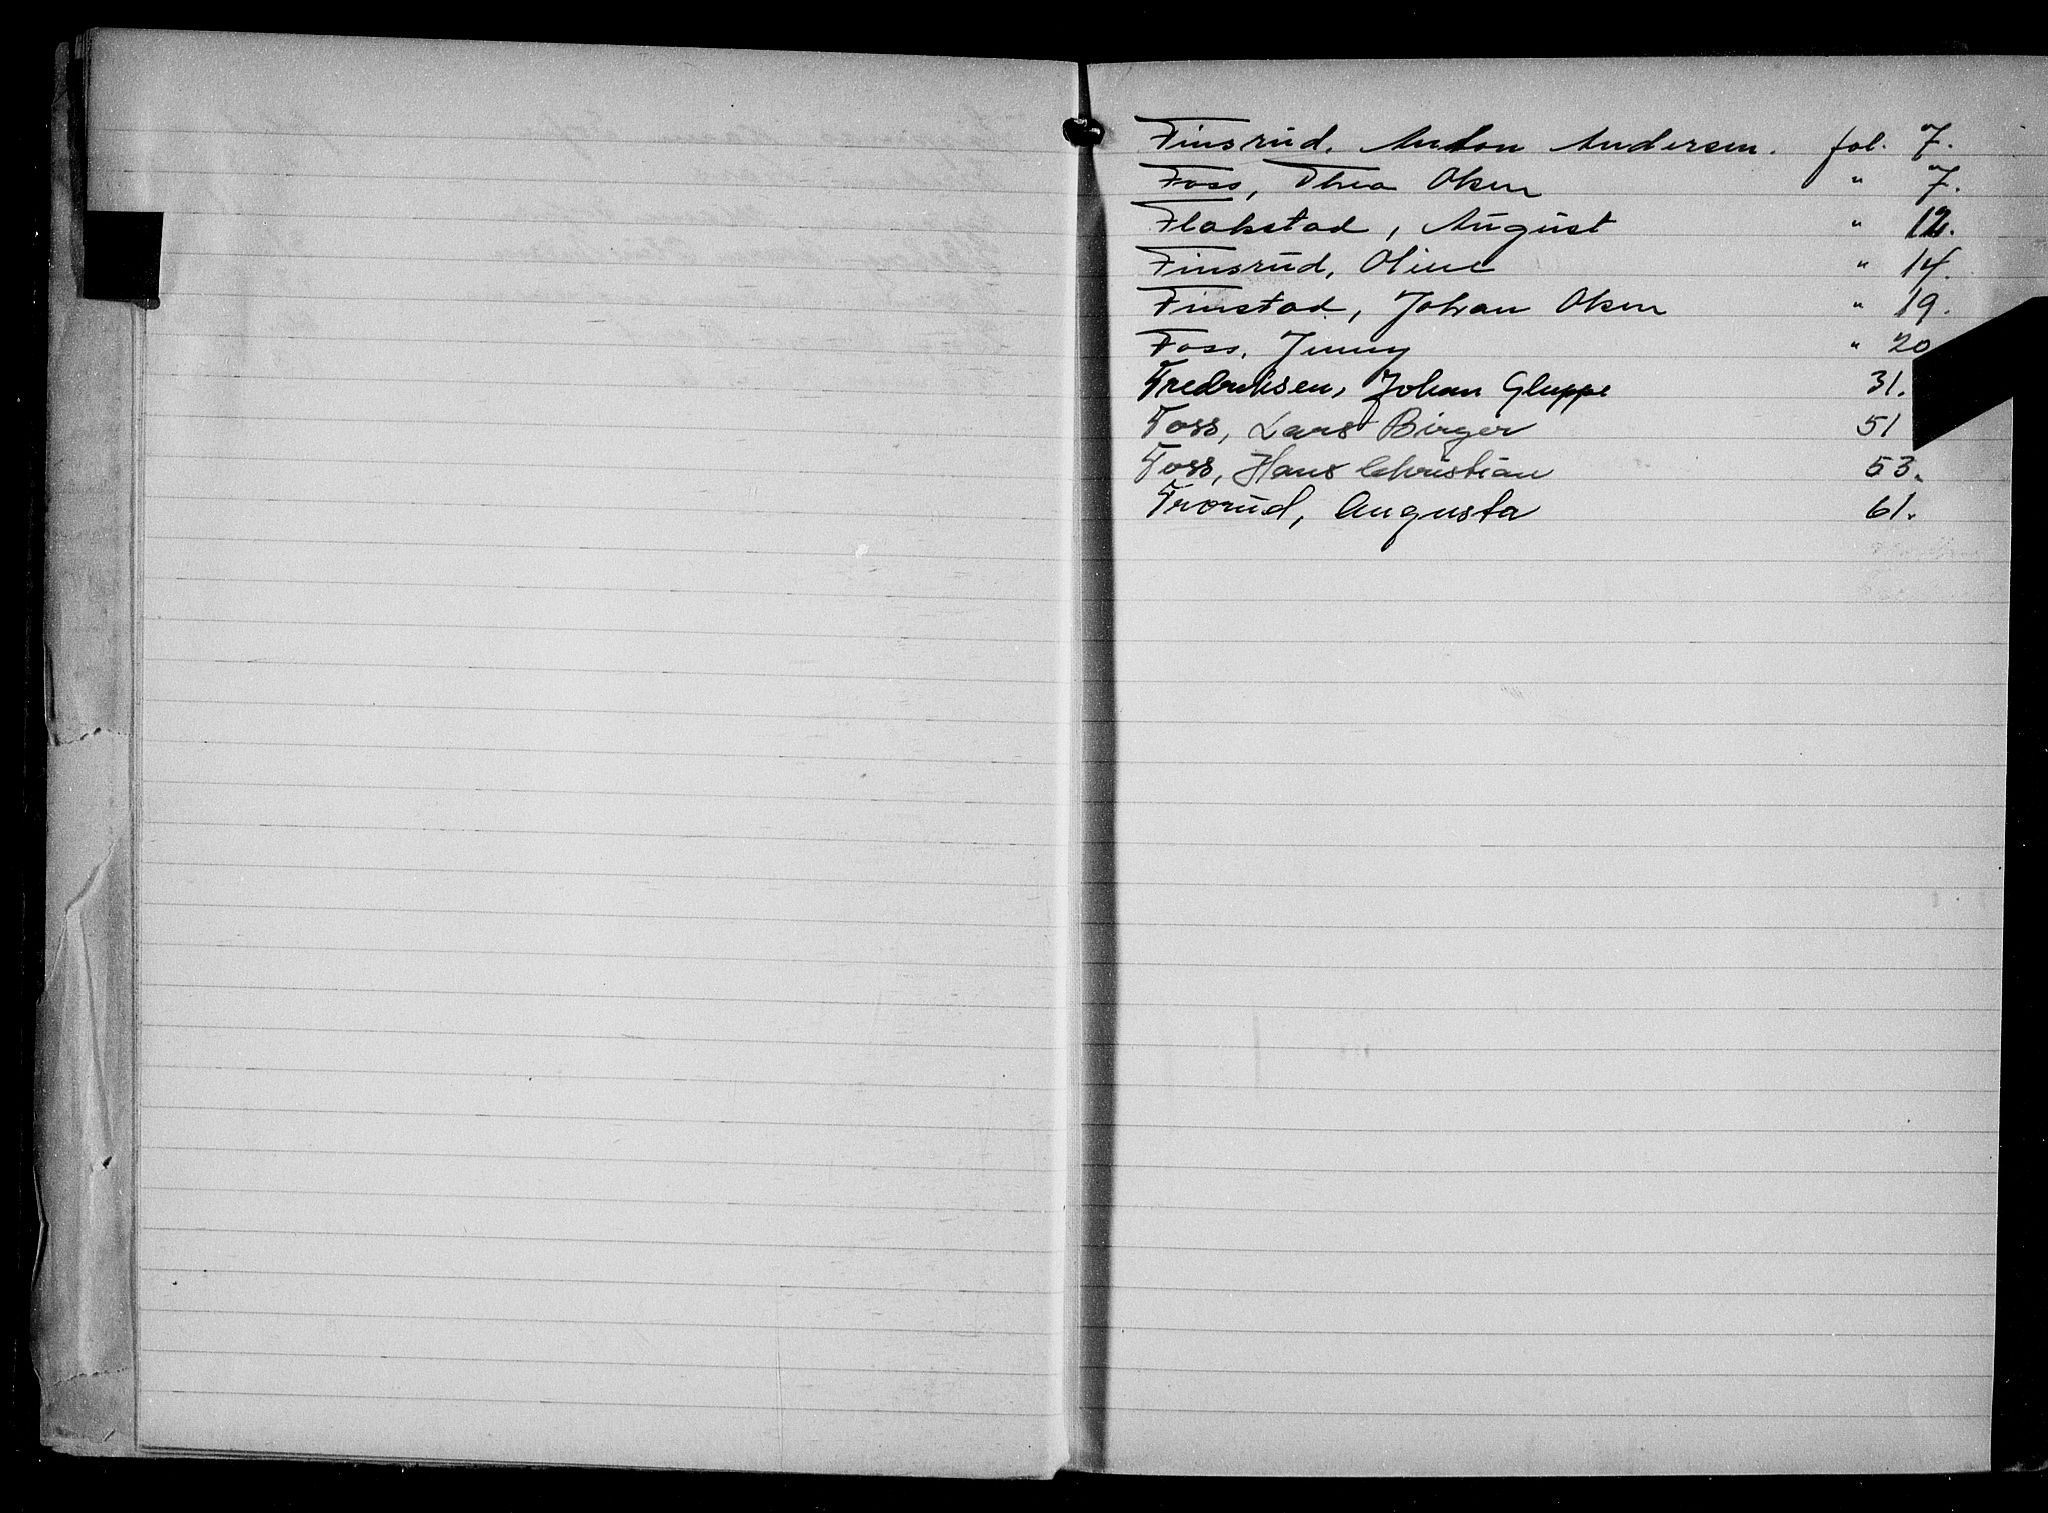 Finsrud, Anton Andersen. fol. 7.
Foss, Thea Olsen " 7.
Flakstad, August " 12.
Finsrud, Oline " 14.
Finstad, Johan Olsen " 19.
Foss, Jenny " 20
Fredriksen, Johan Gluppe 31.
Foss, Lars Birger 51
Foss, Hans Christian 53.
Frorud, Augusta 61.